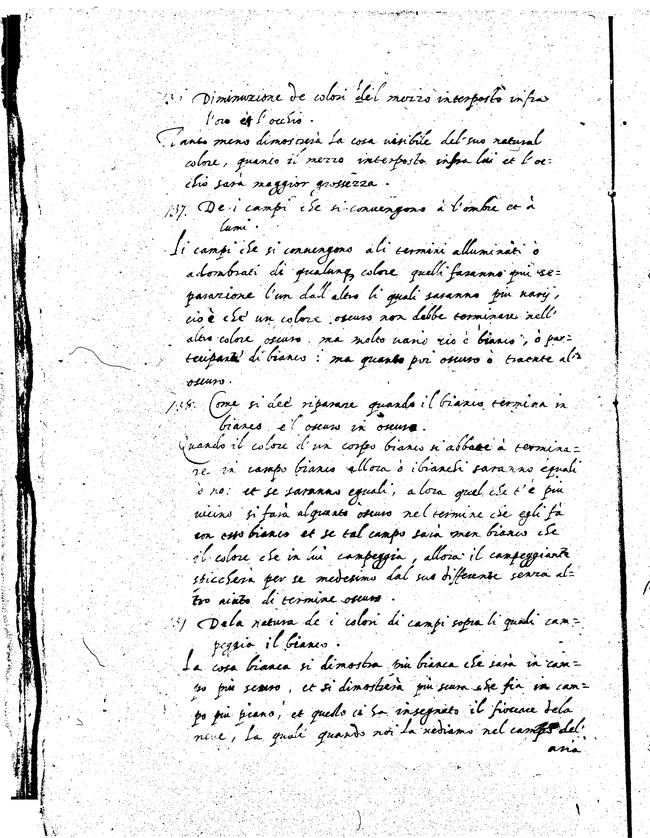 Diminuzione de colori del mezzo interposto infra
l'oro et l'occhio.
Tanto meno dimostrerà la cosa visibile del suo natural
colore, quanto il mezzo interposto infra lui et l'oc=
chio sarà maggior grossezza.
137. De i campi che si convengono à l'ombre et à
lumi.
Li campi che si convengono a li termini alluminati ò
adombrati di qualunq colore quelli faranno piu se=
parazione l'un dall'altro li quali saranno piu varij,
cio è che un colore oscuro non debbe terminare nell'
altro colore oscuro ma molto vario cio è bianco, ò par=
tecipante di bianco: ma quanto poi oscuro ò traente al'
oscuro.
138. Come si deè riparare quando il bianco termina in
bianco e l'oscuro in oscuro.
Quando il colore d'un corpo bianco si abbate à termina=
re in campo bianco allora ò i bianchi saranno equali
ò no: et se saranno equali, alora quel che t'è piu
vicino si farà alquanto oscuro nel termine che egli fà
con esso bianco et se tal campo sarà men bianco che
il colore che in lui campeggia, allora il campeggiante
spiccherà per se medesimo dal suo differente senza al=
tro aiuto di termine oscuro.
Dela natura de i colori di campi sopra li quali cam=
peggia il bianco.
La cosa bianca si dimostra piu bianca che sarà in cam=
po piu scuro, et si dimostrerà piu scura che fia in cam=
po piu bianco, et questo ci ha insegnato il fioccare dela
neve, la quale quando noi la vediamo nel campo del'
aria